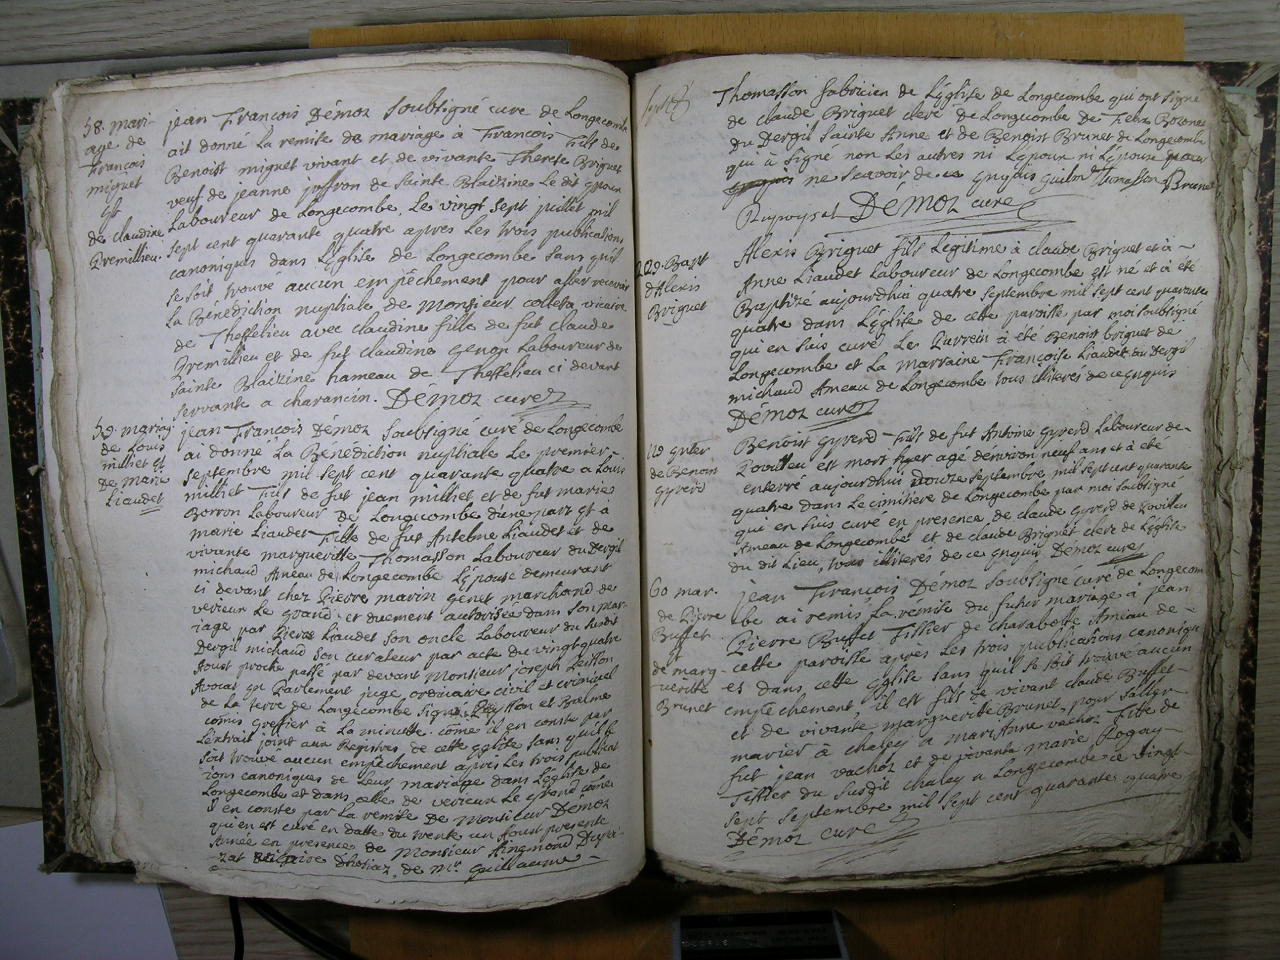 58. mari-
age de
François
miguet
et
de claudine
Premillieu.
jean François Démoz soubsigné curé de Longecombe
ait donné la remise de mariage à François Fils de
Benoist miguet vivant et de vivante Therese Briguet
veuf de jeanne joffron de Sainte Blaizine Le dit epoux
Laboureur de Longecombe, Le vingt sept juillet mil
sept cent quarante quatre apres les trois publications
canoniques dans L'église de Longecombe sans qu'il
se soit trouvé aucun empêchement pour aller recevoir
La Bénédiction nuptiale de Monsieur colleta vicaire
de Theffelieu avec claudine fille de fut claude
Premillieu et de fut claudine Genon Laboureur de
Sainte Blaizine hameau de Theffelieu ci devant
servante a charancin. Démoz curé
59. mariag
de Louis
milliet et
De marie
Liaudet
jean François Démoz soubsigné curé de Longecombe
ai donné La Bénédiction nuptiale Le premier
septembre mil sept cent quarante quatre a Louis
milliet Fils de fut jean milliet et de fut marie
Borron Laboureur de Longecombe d'une part et à
marie Liaudet Fille de fut Antelme Liaudet et de
vivante margueritte Thomasson Laboureur du Dergit
michaud Ameau de Longecombe L'épouse demeurant
ci devant chez Pierre marin Genet marchand de
verieux Le grand; et duement autorisée dans son mar-
iage par Pierre Liaudet son oncle Laboureur du susdit
Dergit michaud son curateur par acte du vingt quatre
Aoust proche passé par devant Monsieur joseph Peisson
Avocat en Parlement juge ordinaire civil et criminel
de la terre de Longecombe signé Peysson et Balme
comis Greffier à La minutte come il en conste par
L'extrait joint aux Registres de cette eglise sans qu'il se
soit trouvé aucun empêchement apres Les trois publicat
ions canoniques de Leur mariage dans L'église de
Longecombe et dans celle de verieux Le grand come
il en conste par La remise de Monsieur Démoz
qui en est curé en datte du trente un Aoust presente
Année en présence de Monsieur Aingmond Dupra-
zat de Mr. Guillaume
Thomasson fabricien de L'église de Longecombe qui ont signé
de claude Briguet clerc de Longecombe de Felix Boronnes
du Dergit Sainte Anne et de Benoist Brunet de Longecombe
qui à signé non Les autres ni L'epoux ni L'epouse pour
ne sçavoir de ce enquis Guilon Tomasson Brunet
Démoz curé
129. Bapt
d'Alexis
Briguet
Alexis Briguet fils Legitime à claude Briguet et à
Anne Liaudet Laboureur de Longecombe est né et à été
Baptizé aujourdhui quatre septembre mil sept cent quarante
quatre dans L'église de cette paroisse par moi soubsigné
qui en suis curé Le Parrein à été Benoist briguet de
Longecombe et La marraine Françoise Liaudet du Dergit
michaud Ameau de Longecombe tous illiterés de ce enquis
Démoz curé
enter
de Benoin
Gyverd
Benoist Gyverd fils de fut Antoine Gyverd Laboureur de
Povillieu est mort hyer agé d'environ neuf ans et à été
enterré aujourdhui douze septembre mil sept cent quarante
quatre dans Le cimitiere de Longecombe par moi soubsigné
qui en suis curé en presence de claude Gyverd de Povillieu
Ameau de Longecombe et de claude Briguet clerc de L'église
du dit Lieu, tous illiterés de ce enquis Démoz curé
60 mar.
de Pierre
Buffet
de marg-
-ueritte
Brunet
jean François Démoz soubsigné curé de Longecom
be ai remis La remise du futur mariage à jean
Pierre Buffet Tissier de charabotte Ameau de
cette paroisse apres Les trois publications canoniqu
es dans cette église sans qu'il se soit trouvé aucun
empêchement, il est fils de vivant claude Buffet
et de vivante margueritte Brunet, pour s'aller
marier à chaley a marianne vachoz Fille de
fut jean vachoz et de vivante marie Rogay
Tissier du susdit chaley a Longecombe ce vingt
sept septembre mil sept cent quarante quatre
Démoz curé